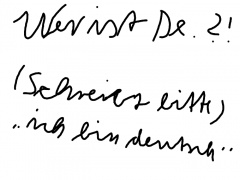 Wer ist De. ?!
(Schreibt bitte)
"ich bin deutsch"